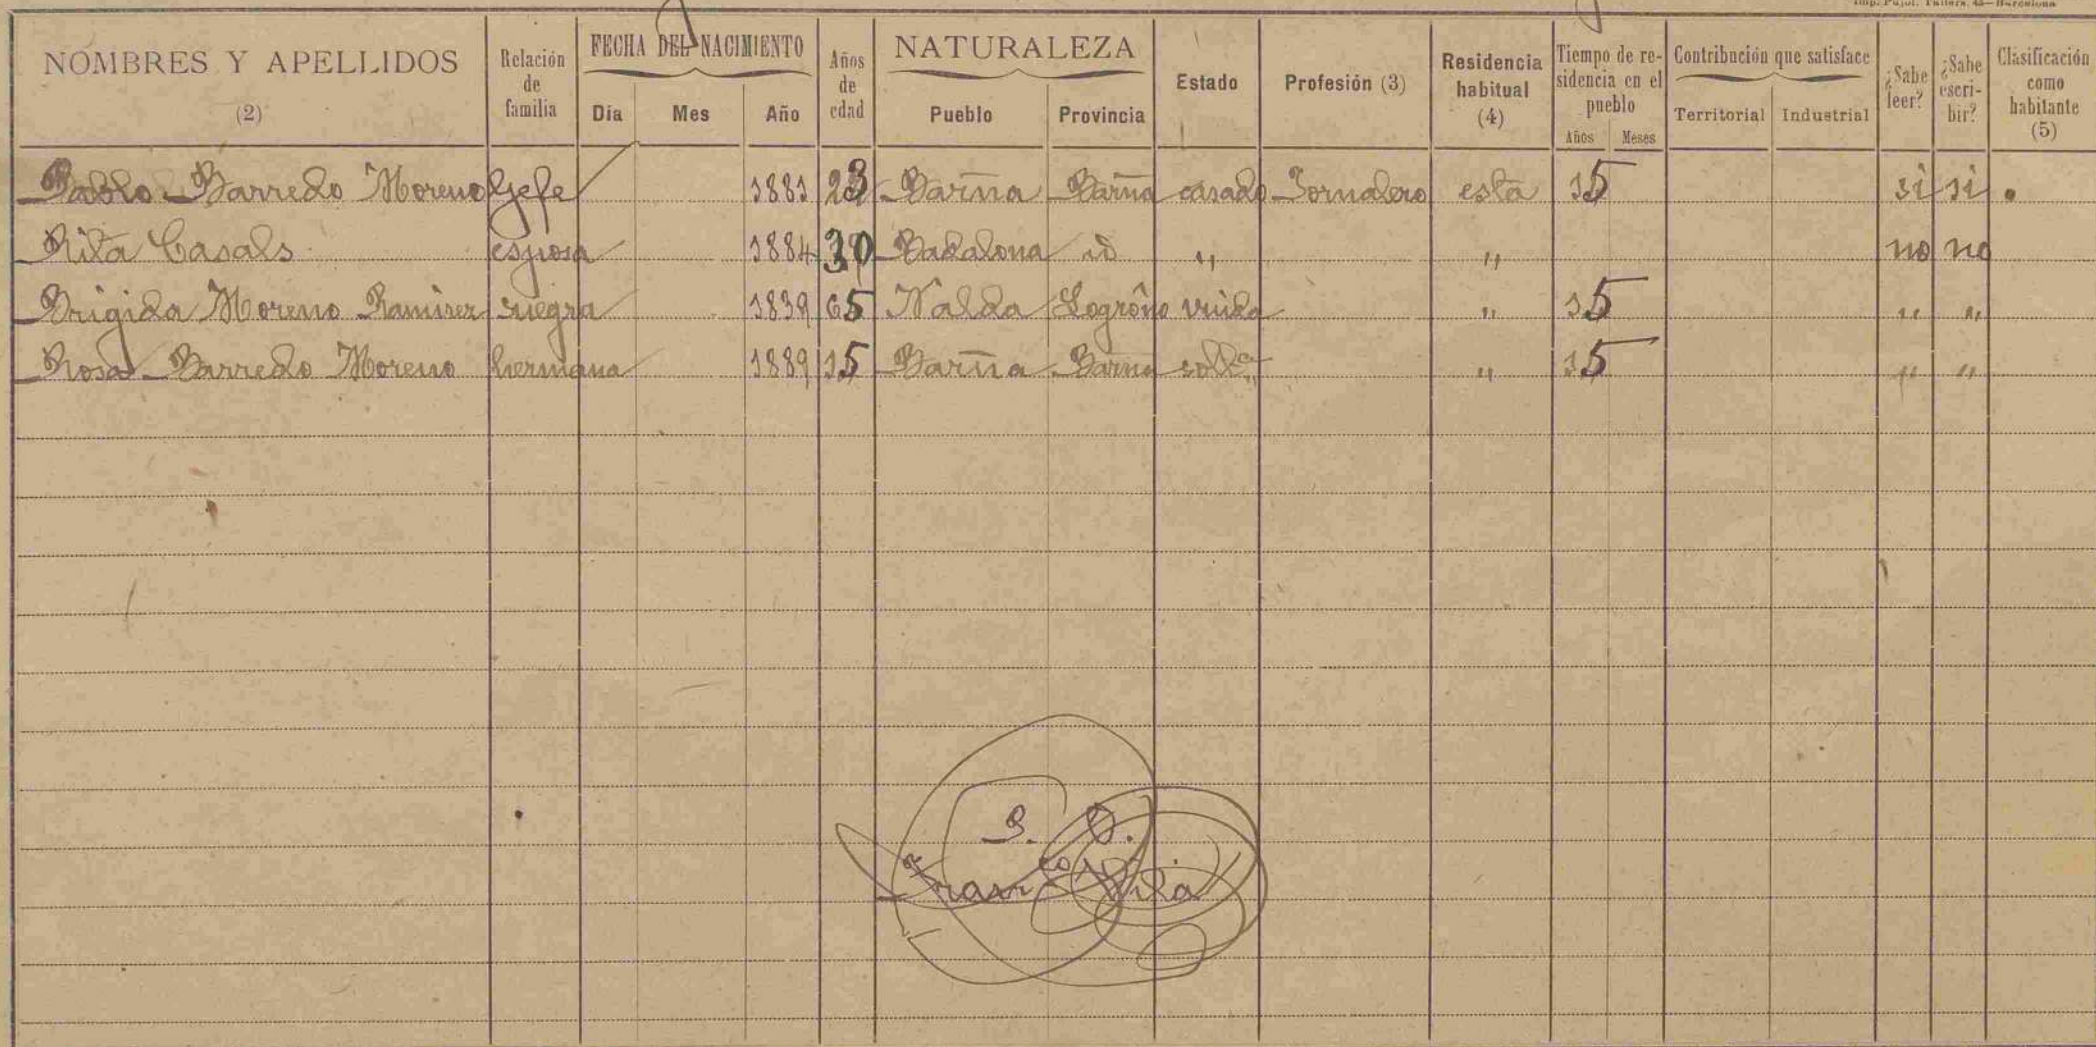 Imp. Pujol, Tallers, 45—Barcelona
NOMBRES Y APELLIDOS (2) Relación de familia FECHA DEL NACIMIENTO Día Mes Año Años de edad NATURALEZA Pueblo Provincia Estado Profesión (3) Residencia habitual (4) Tiempo de residencia en el pueblo Años Meses Contribución que satisface Territorial Industrial ¿Sabe leer? ¿Sabe escribir? Clasificación como habitante (5)
Pablo Barredo Moreno Gefe 1881 23 Barña Barña casado Jornalero esta 15 si si
Rita Casals esposa 1884 Badalona id " " no no
Brigida Moreno Ramirez suegra 1839 65 Nalda Logroño viuda " 15 " "
Rosa Barredo Moreno hermana 1889 15 Barña Barña soltª " 15 " "
P. O.
Franco Vila